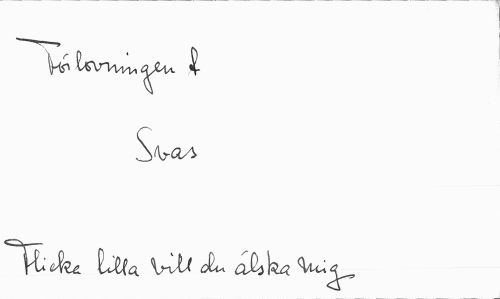 Förlovningen &
Svas
Flicka lilla vill du älska mig